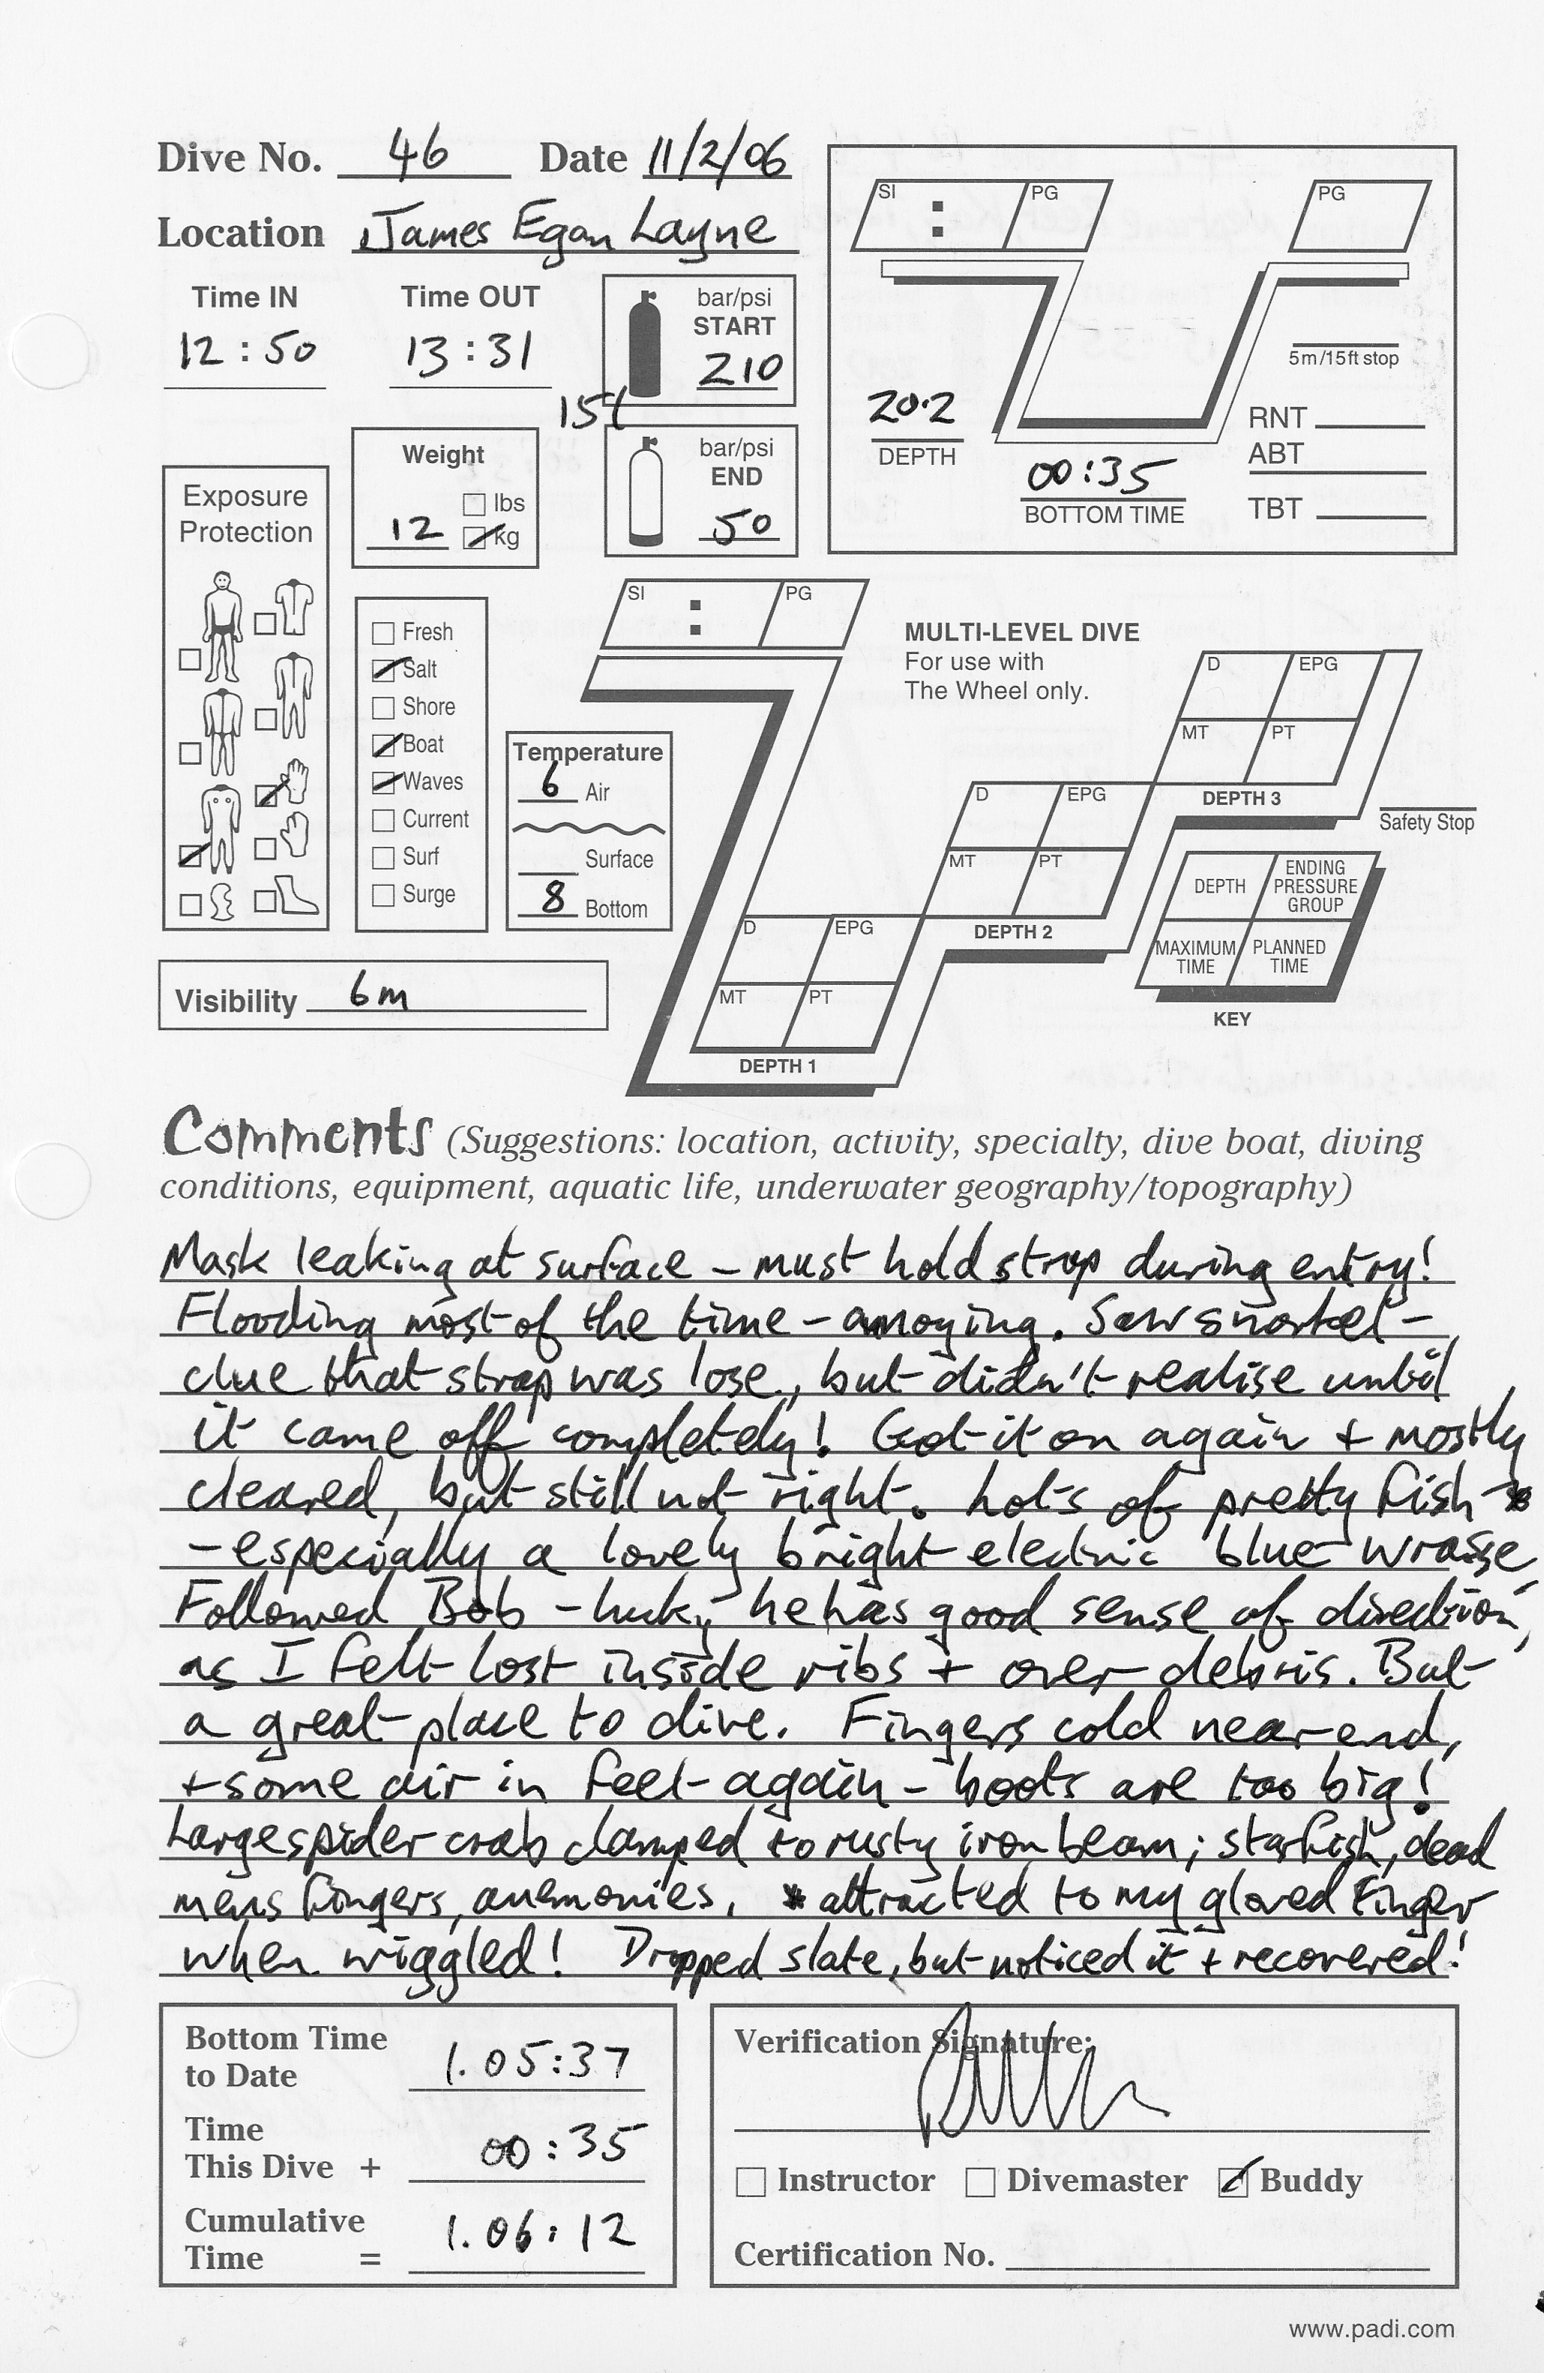 Dive No. 46 Date 11/2/06
Location James Egan Layne
Time IN Time OUT
12:50 13:31
bar/psi
START
210
15l
bar/psi
END
50
SI : PG PG
5m/15ft stop
20.2
DEPTH
00:35
BOTTOM TIME
RNT
ABT
TBT
Weight
lbs
12 kg
Exposure
Protection
Fresh
Salt
Shore
Boat
Waves
Current
Surf
Surge
Temperature
6 Air
Surface
8 Bottom
Visibility 6m
SI : PG
MULTI-LEVEL DIVE
For use with
The Wheel only.
D EPG
MT PT
DEPTH 3
D EPG
MT PT
DEPTH 2
D EPG
MT PT
DEPTH 1
Safety Stop
DEPTH
ENDING
PRESSURE
GROUP
MAXIMUM
TIME
PLANNED
TIME
KEY
Comments (Suggestions: location, activity, specialty, dive boat, diving
conditions, equipment, aquatic life, underwater geography/topography)
Mask leaking at surface – must hold strap during entry!
Flooding most of the time – annoying. Saw snorkel –
clue that strap was lose, but didn't realise until
it came off completely! Got it on again + mostly
cleared, but still not right. Lots of pretty fish
– especially a lovely bright electric blue wrasse
Followed Bob – lucky he has good sense of direction,
as I felt lost inside ribs + over debris. But
a great place to dive. Fingers cold near end,
+ some air in feet again – boots are too big!
Large spider crab clamped to rusty iron beam; starfish, dead
mens fingers, anemonies. * attracted to my gloved finger
when wiggled! Dropped slate, but noticed it + recovered!
Bottom Time
to Date 1.05:37
Time
This Dive + 00:35
Cumulative
Time = 1.06:12
Verification Signature:
Instructor Divemaster Buddy
Certification No.
www.padi.com